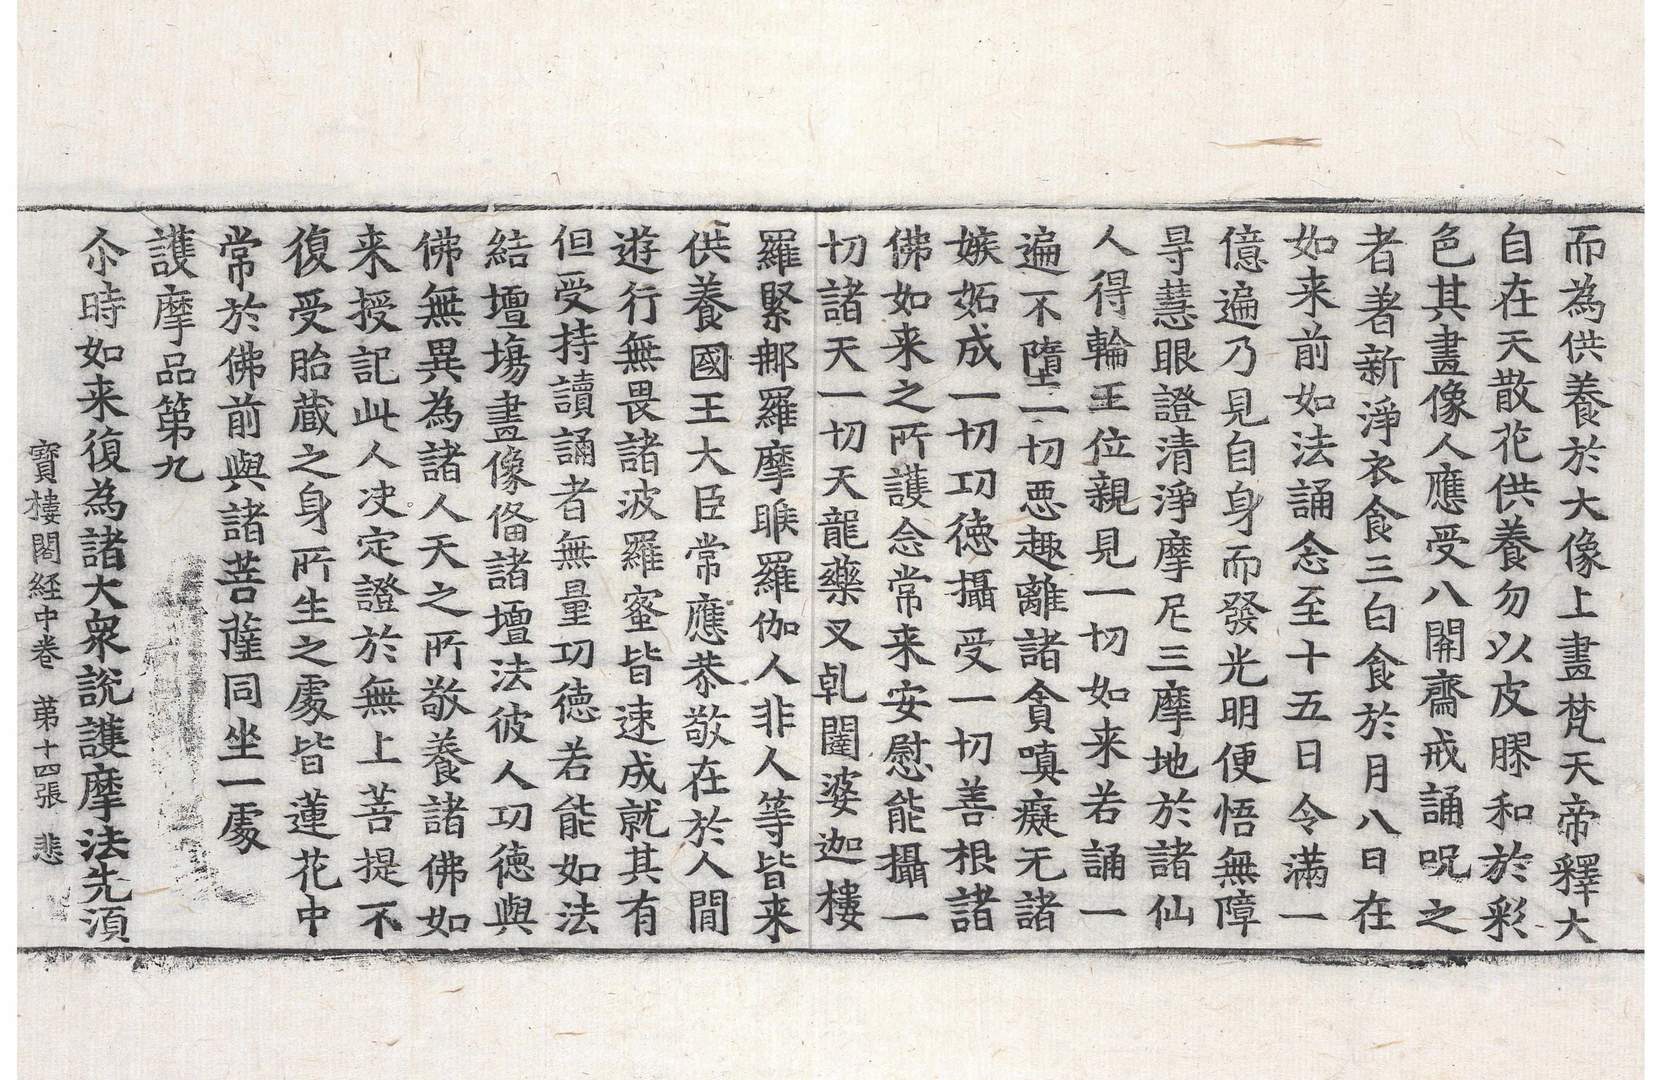 而為供養於大像上畫梵天帝釋大
自在天散花供養勿以皮膠和於彩
色其畫像人應受八關齋戒誦呪之
者著新淨衣食三白食於月八日在
如来前如法誦念至十五日令滿一
億遍乃見自身而發光明便悟無障
㝵慧眼證清淨摩尼三摩地於諸仙
人得輪王位親見一切如来若誦一
遍不墮一切惡趣離諸貪嗔癡无諸
嫉妬成一切功德攝受一切善根諸
佛如来之所護念常来安慰能攝一
切諸天一切天龍藥叉乹闥婆迦樓
羅緊那羅摩睺羅伽人非人等皆来
供養國王大臣常應恭敬在於人間
遊行無畏諸波羅蜜皆速成就其有
但受持讀誦者無量功德若能如法
結壇塲畫像俻諸壇法彼人功德與
佛無異為諸人天之所敬養諸佛如
来授記此人决定證於無上菩提不
復受胎藏之身所生之處皆蓮花中
常於佛前與諸菩薩同坐一處
護摩品第九
尒時如来復為諸大衆說護摩法先須
寶樓閣経中卷 第十四張 悲